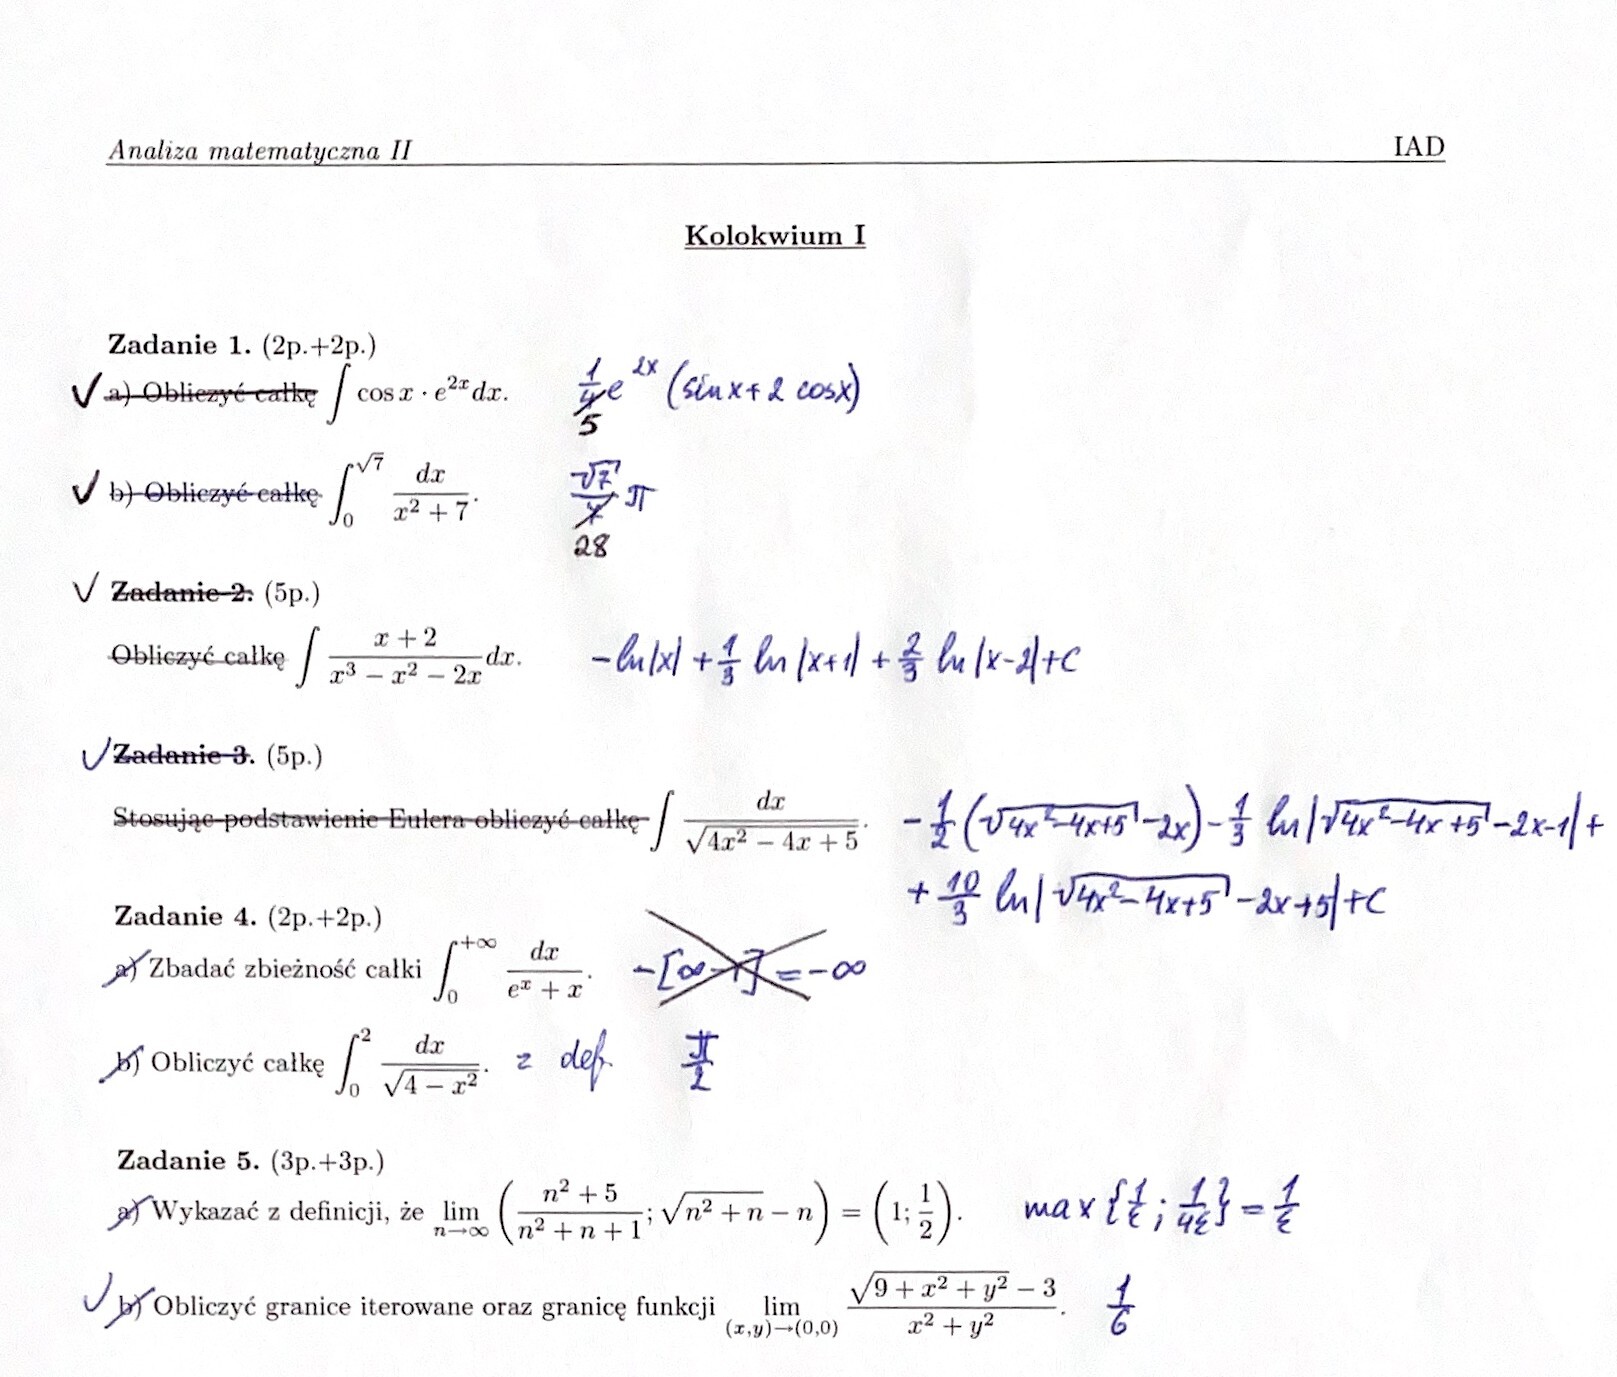 Analiza matematyczna II IAD
Kolokwium I
Zadanie 1. (2p.+2p.)
✓ a) Obliczyć całkę ∫ cos x · e^{2x} dx. 1/4 5 e^{2x} (sin x + 2 cos x)
✓ b) Obliczyć całkę ∫_0^{√7} dx/(x² + 7). √7/7 28 π
✓ Zadanie 2. (5p.)
Obliczyć całkę ∫ (x + 2)/(x³ − x² − 2x) dx. −ln|x| + 1/3 ln|x+1| + 2/3 ln|x−2| + C
✓ Zadanie 3. (5p.)
Stosując podstawienie Eulera obliczyć całkę ∫ dx/√(4x² − 4x + 5). −1/2 (√(4x²−4x+5) −2x) − 1/3 ln|√(4x²−4x+5) −2x−1| +
+ 10/3 ln|√(4x²−4x+5) −2x+5| + C
Zadanie 4. (2p.+2p.)
a) Zbadać zbieżność całki ∫_0^{+∞} dx/(e^x + x). −[∞−1] = −∞
b) Obliczyć całkę ∫_0^2 dx/√(4 − x²). z def. π/2
Zadanie 5. (3p.+3p.)
a) Wykazać z definicji, że lim_{n→∞} ((n² + 5)/(n² + n + 1); √(n² + n) − n) = (1; 1/2). max {1/ε ; 1/4ε} = 1/ε
✓ b) Obliczyć granice iterowane oraz granicę funkcji lim_{(x,y)→(0,0)} (√(9 + x² + y²) − 3)/(x² + y²). 1/6